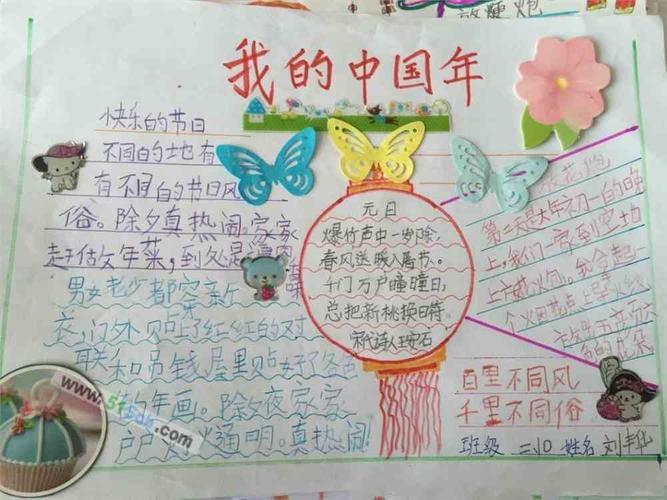 我的中国年
快乐的节日
不同的地有
有不同的节日风
俗。除夕真热闹。家家
赶做年菜，到处是酒肉
男女老少都穿新
衣，门外贴上了红红的对
联和吊钱屋里贴好了各色
的年画。除夕夜家家
户户 通明。真热闹
元日
爆竹声中一岁除，
春风送暖入屠苏。
千门万户曈曈日，
总把新桃换旧符。
王安石
放花炮
第二天是大年初一白的晚
上，我们一家到空地
上放火炮。我会起一
个火花点上
百里不同风
千里不同俗
班级 三 姓名 刘丰华
www.
.com
放鞭炮